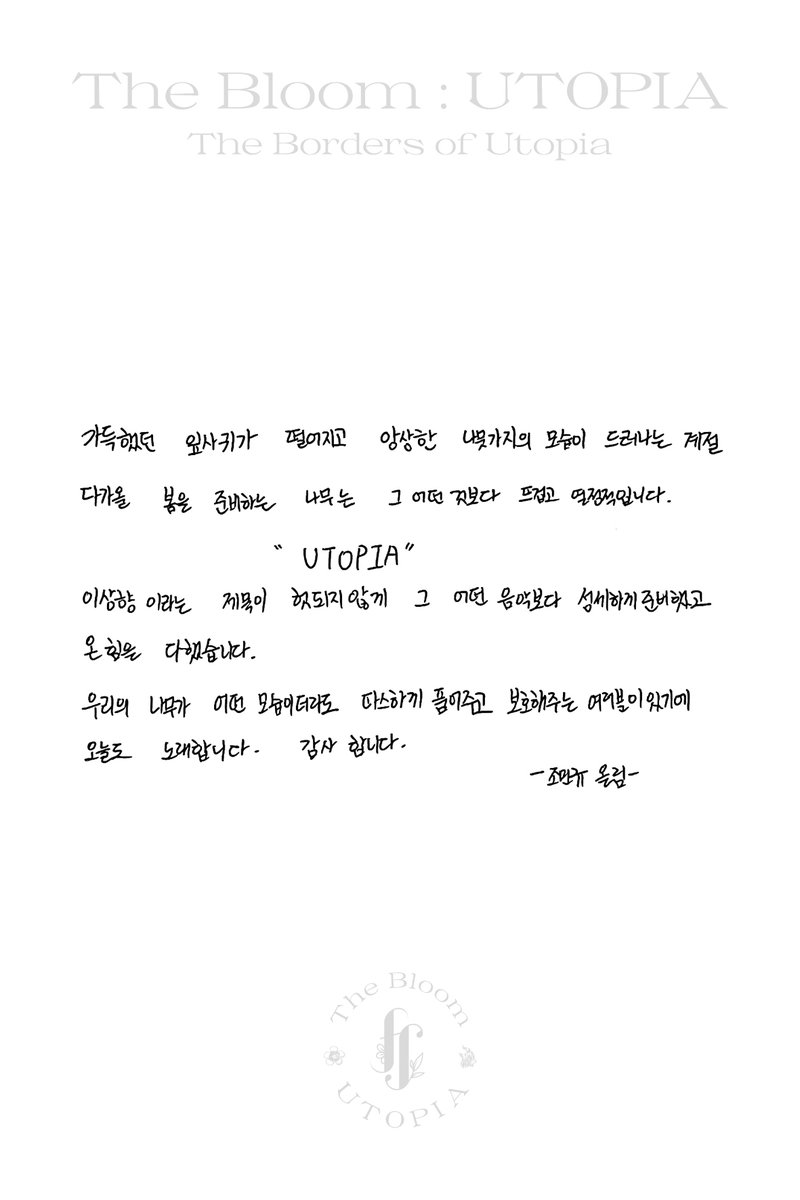 The Bloom : UTOPIA
The Borders of Utopia
가득했던 잎사귀가 떨어지고 앙상한 나뭇가지의 모습이 드러나는 계절
다가올 봄을 준비하는 나무는 그 어떤 것보다 뜨겁고 열정적입니다.
“UTOPIA”
이상향 이라는 제목이 헛되지않게 그 어떤 음악보다 섬세하게 준비했고
온 힘을 다했습니다.
우리의 나무가 어떤 모습이더라도 따스하게 품어주고 보호해주는 여러분이 있기에
오늘도 노래합니다. 감사 합니다.
-조민규 올림-
The Bloom
UTOPIA